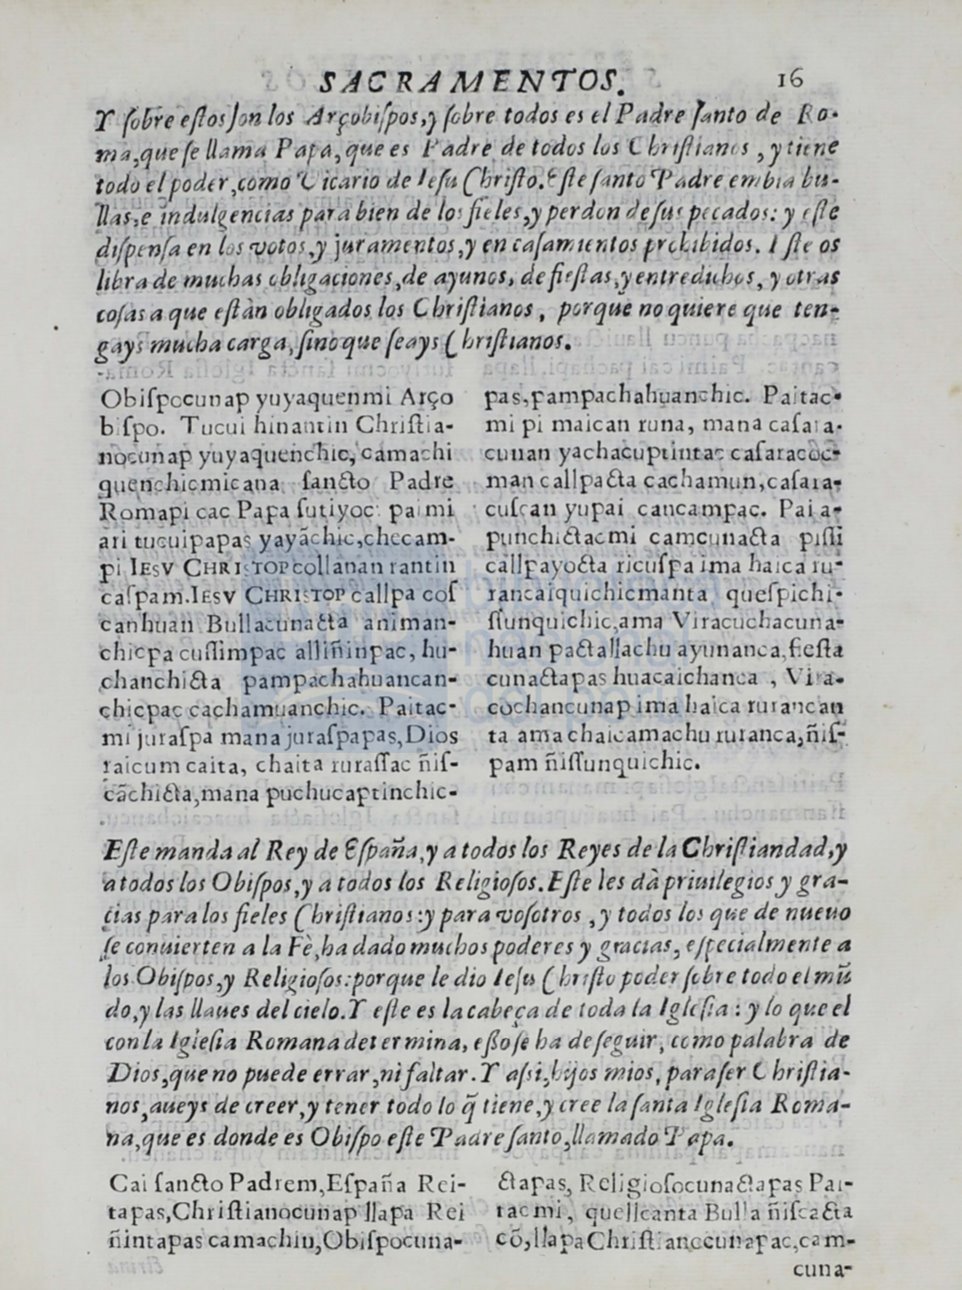 SACRAMENTOS. 16
Y ſobre eſtos ſon los Arçobiſpos,y ſobre todos es el Padre ſanto de Ro-
ma,que ſe llama Papa, que es Padre de todos los Chriſtianos , y tiene
todo el poder,como Vicario de Ieſu Chriſto.Eſte ſanto Padre embia bu-
llas,e indulgencias para bien de los fieles,y perdon de ſus pecados: y eſte
diſpenſa en los votos,y juramentos,y en caſamientos prohibidos. Eſte os
libra de muchas obligaciones,de ayunos, de fieſtas,y entredichos, y otras
coſas a que eſtàn obligados los Chriſtianos , porque no quiere que ten-
gays mucha carga, ſino que ſeays Chriſtianos.
Obiſpocunap yuyaquenmi Arço
biſpo. Tucui hinantin Chriſtia-
nocunap yuyaquenchic, camachi
quenchicmicana ſancto Padre
Romapi cac Papa ſutiyoc: paimi
ari tucuipapas yayāchic,checam-
pi IESV CHRISTOP collanan rantin
caſpam.IESV CHRISTOP callpa coſ
canhuan Bullacunacta animan-
chicpa cuſſimpac alliñinpac, hu-
chanchicta pampachahuancan-
chicpac cachamuanchic. Paitac-
mi juraſpa mana juraſpapas,Dios
raicum caita, chaita ruraſſac ñiſ-
cāchicta,mana puchucaptinchic-
pas,pampachahuanchic. Paitac-
mi pi maican runa, mana caſara-
cunan yachacuptintac caſaracoc-
man callpacta cachamun,caſara-
cuſcan yupai cancampac. Pai a-
punchictacmi camcunacta piſti
callpayocta ricuſpa ima haica ru-
rancaiquichicmanta queſpichi-
ſſunquichic,ama Viracuchacuna-
huan pactallachu ayunanca,fieſta
cunactapas huacaichanca , Vira-
cochancunap ima haica rurancan
ta ama chaicamachu ruranca,ñiſ-
pam ñiſſunquichic.
Eſte manda al Rey de Eſpaña,y a todos los Reyes de la Chriſtiandad,y
a todos los Obiſpos,y a todos los Religioſos.Eſte les dà priuilegios y gra-
cias para los fieles Chriſtianos:y para voſotros , y todos los que de nueuo
ſe conuierten a la Fè,ha dado muchos poderes y gracias, eſpecialmente a
los Obiſpos,y Religioſos:porque le dio Ieſu Chriſto poder ſobre todo el mū
do,y las llaues del cielo.Y eſte es la cabeça de toda la Igleſia : y lo que el
con la Igleſia Romana determina, eſto ſe ha de ſeguir, como palabra de
Dios,que no puede errar,ni faltar.Y aſsi,hijos mios, para ſer Chriſtia-
nos,aueys de creer,y tener todo lo q̃ tiene,y cree la ſanta Igleſia Roma-
na,que es donde es Obiſpo eſte Padre ſanto,llamado Papa.
Cai ſancto Padrem,Eſpaña Rei-
tapas,Chriſtianocunap llapa Rei
ñintapas camachin,Obiſpocuna-
ctapas, Religioſocunactapas Pai-
tacmi, quellcanta Bulla ñiſcacta
cō,llapa Chriſtianocunapac,cam-
cuna-